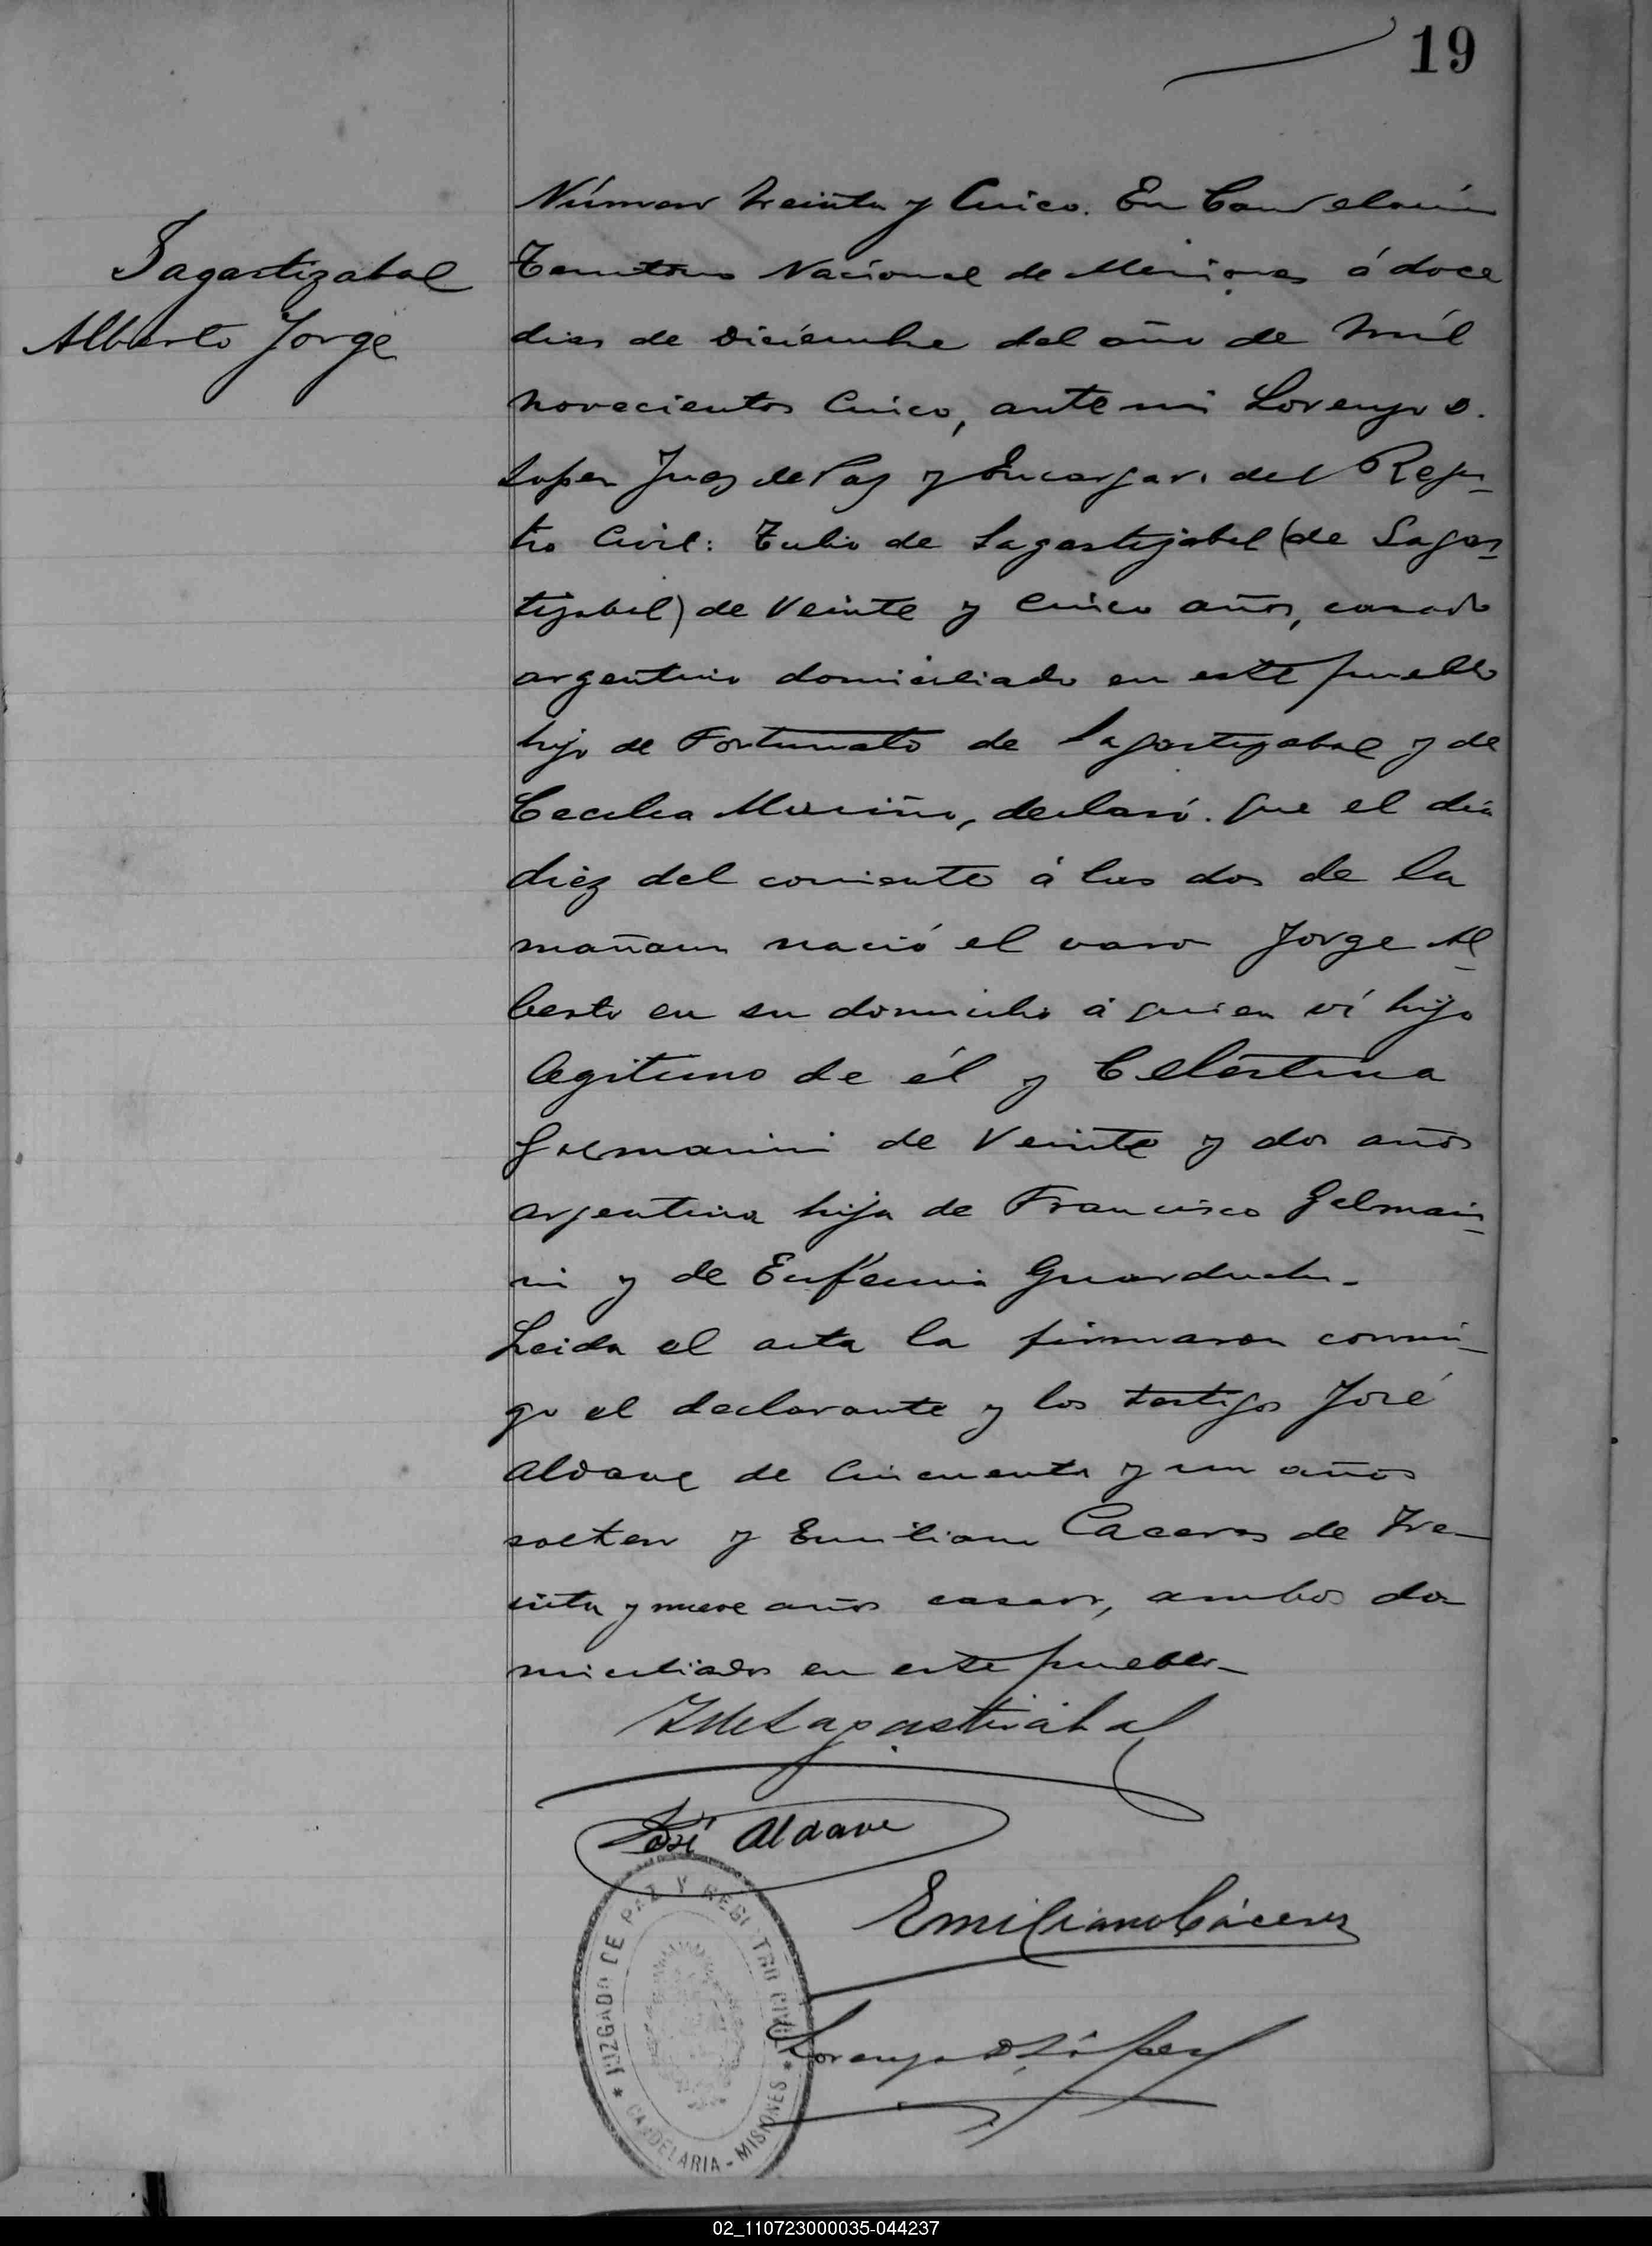 19
Sagastizabal
Alberto Jorge
Número treinta y Cinco. En Candelaria
Territorio Nacional de Misiones á doce
dias de Diciembre del año de mil
novecientos Cinco, ante mi Lorenzo D.
Lopez Juez de Paz y Encargado del Regis-
tro Civil: Tulio de Sagastizabal (de Sagas-
tizabal) de Veinte y cinco años, casado
argentino domiciliado en este pueblo
hijo de Fortunato de Sagastizabal y de
Cecilia Muriño, declaró. que el dia
diez del corriente á las dos de la
mañana nació el varon Jorge Al-
berto en su domicilio á quien ví hijo
legitimo de él y Celestina
Gelmanini de Veinte y dos años
argentina hija de Francisco Gelmani-
ni y de Eufemia
Leida el acta la firmaron conmi-
go el declarante y los testigos José
Aldave de Cincuenta y un años
soltero y Emiliano Caceres de Tre-
inta y nueve años casado, ambos do
miciliados en este pueblo-
T de Sagastizábal
José Aldave
Emiliano Cáceres
Lorenzo D López
JUZGADO DE PAZ Y REGISTRO CIVIL
* CANDELARIA - MISIONES *
02_110723000035-044237